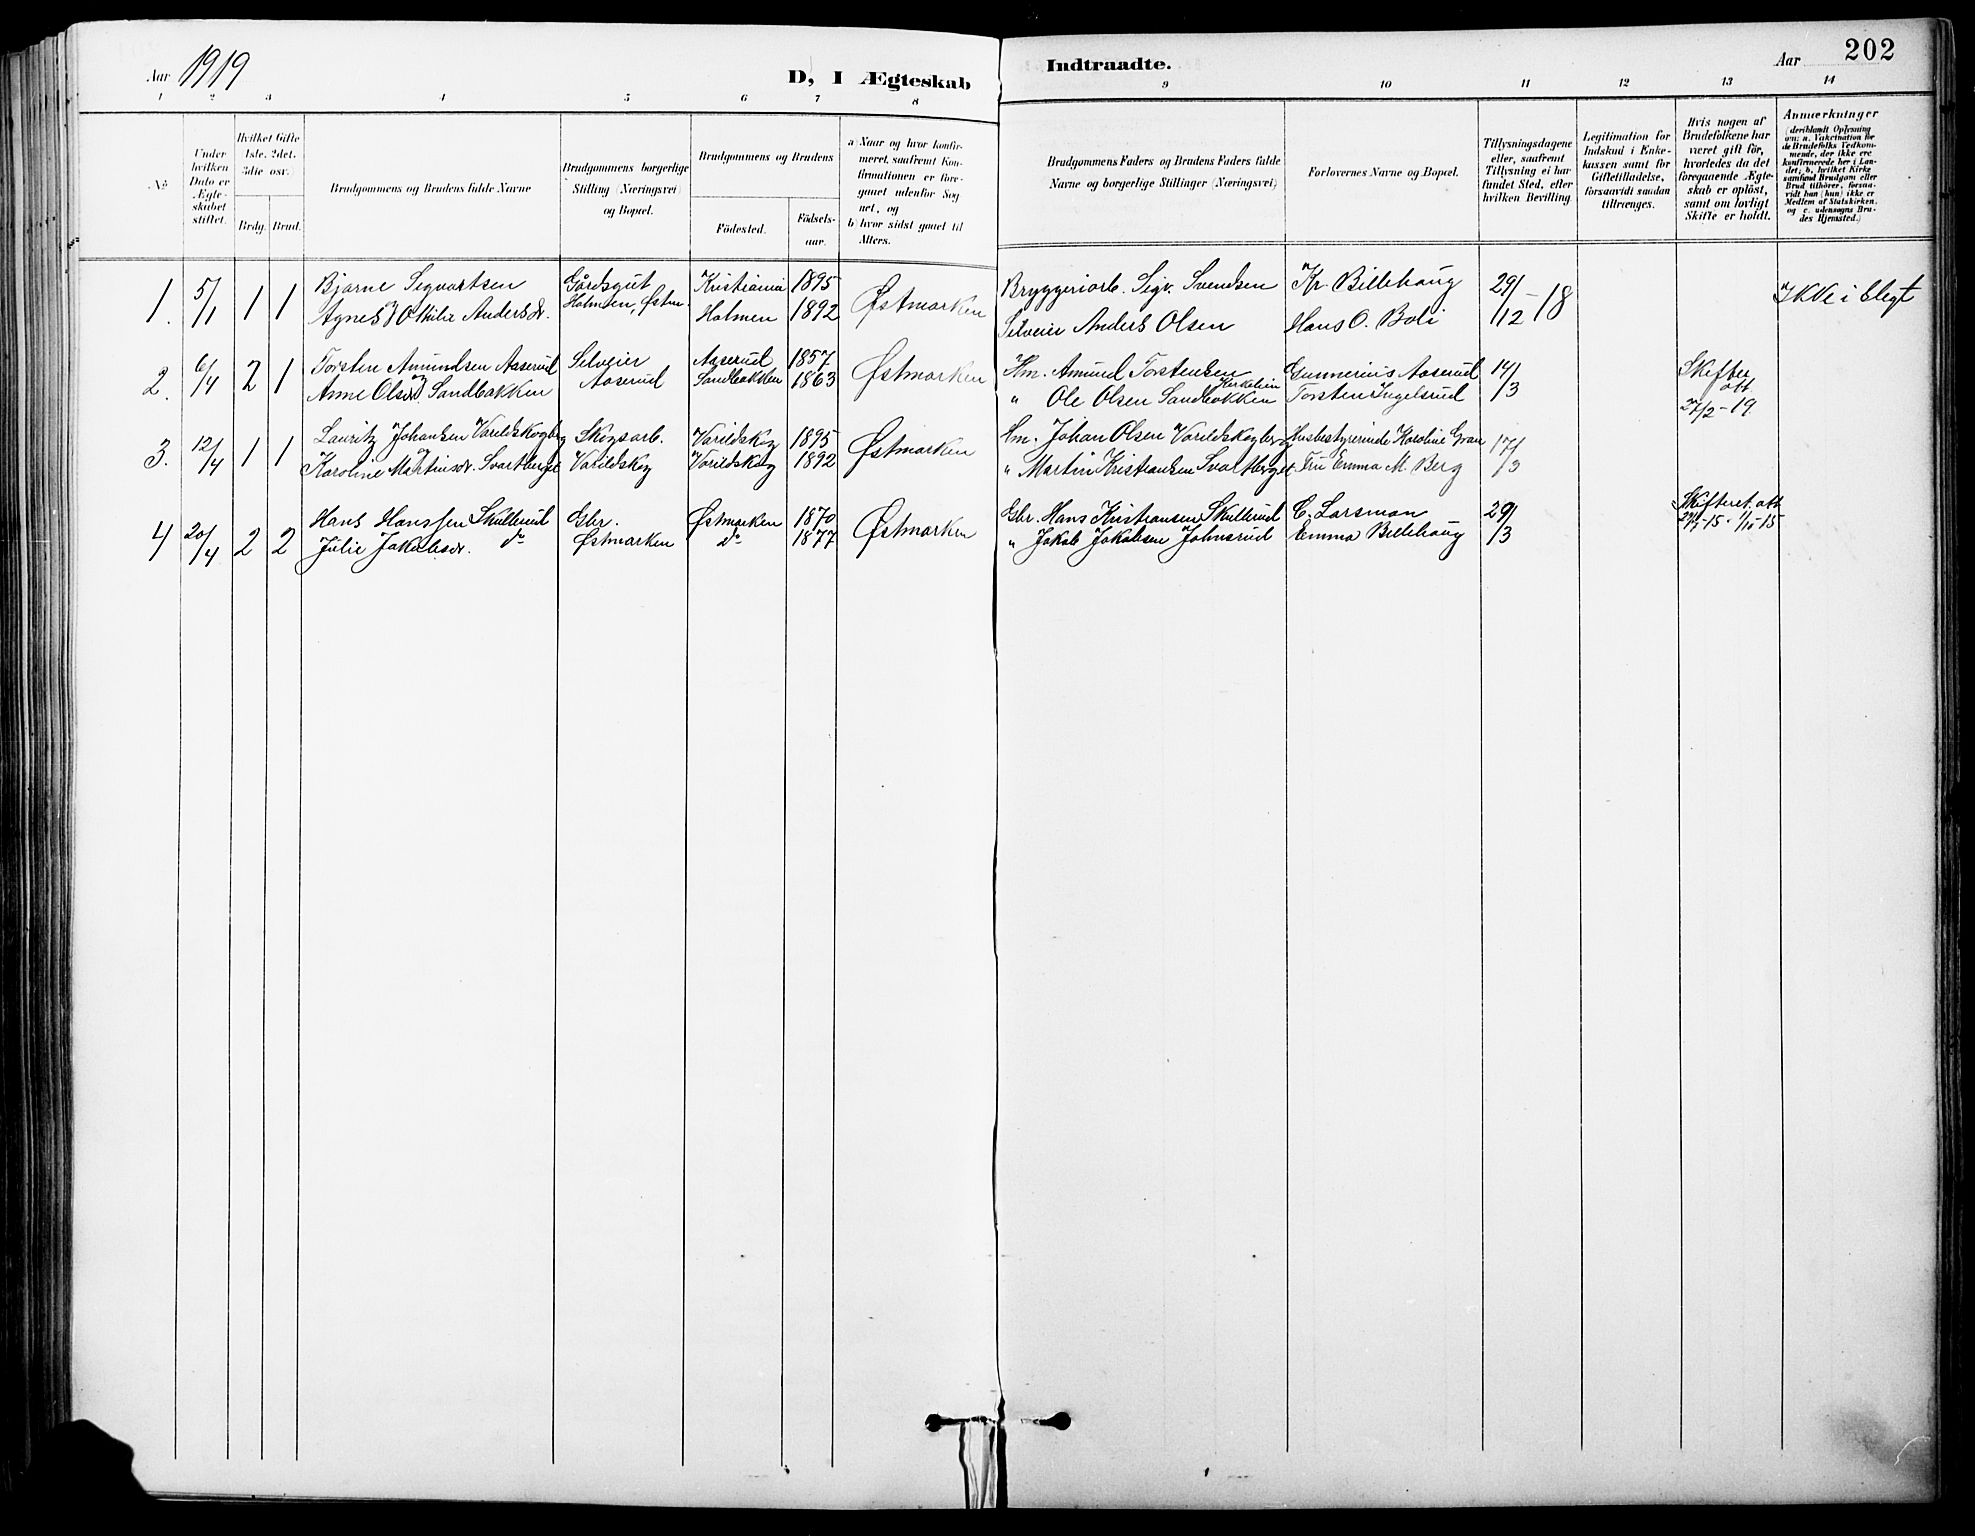 Aar 1919
D, I Ægteskab
Indtraadte.
Aar 202
1 2 3 4 5 6 7 8 9 10 11 12 13 14
No.
Under hvilken Dato er Ægteskabet stiftet.
Hvilket Gifte 1ste. 2det. 3die osv.
Brdg. Brud.
Brudgommens og Brudens fulde Navne
Brudgommens borgerlige Stilling (Næringsvei) og Bopæl.
Brudgommens og Brudens
Födested.
Födselsaar.
a) Naar og hvor konfirmeret, saafremt Konfirmationen er foregaaet udenfor Sognet, og
b) hvor sidst gaaet til Alters.
Brudgommens Faders og Brudens Faders fulde Navne og borgerlige Stillinger (Næringsvei)
Forlovernes Navne og Bopæl.
Tillysningsdagene eller, saafremt Tillysning ei har fundet Sted, efter hvilken Bevilling.
Legitimation for Indskud i Enkekassen samt for Giftetilladelse, forsaavidt saadan tiltrænges.
Hvis nogen af Brudefolkene har været gift før, hvorledes da det foregaaende Ægteskab er oplöst, samt om lovligt Skifte er holdt.
Anmærkninger
(deriblandt Oplysning om: a. Vakcination for de Brudefolks Vedkommende, der ikke ere konfirmerede her i Landet; b. hvilket Kirkesamfund Brudgom eller Brud tilhörer, forsaavidt han (hun) ikke er Medlem af Statskirken, og c. udensogns Brudes Hjemsted.)
1. 5/1 1 1 Bjarne Sigvartsen Gårdsgut Kristiania 1895 Østmarken Bryggeriarb. Sigv. Svendsen Kr. Billehaug 29/12-18 Ikke i slegt
Agnes Othilie Andersdr. Holmen, Østm. Holmen 1892 Selveier Anders Olsen Hans O. Boli
2. 6/4 2 1 Torsten Amundsen Aaserud Selveier Aaserud 1857 Østmarken Hm. Amund Torstensen Gunnerius Aaserud 14/3 Skiftex att 27/2-19.
Anne Olsd. Sandbakken Aaserud Sandbakken 1863 " Ole Olsen Sandbakken Torsten Ingelsrud
3. 12/4 1 1 Lauritz Johansen Varildskogberg Skogsarb. Varildskog 1895 Østmarken Hm. Johan Olsen Varildskogberg Husbestyrerinde Karoline Gran 17/3
Karoline Martinsdr. Svartberget Varildskog Varildskog 1892 " Martin Kristiansen Svartberget Fru Emma M. Berg
4 20/4 2 2 Hans Hanssen Skullerud Gbr. Østmarken 1870 Østmarken Gbr. Hans Kristiansen Skullerud C. Larsman 29/3 Skifteret. att
Julie Jakobsdr. do Østmarken do 1877 " Jakob Jakobsen Johnsrud Emma Billehaug